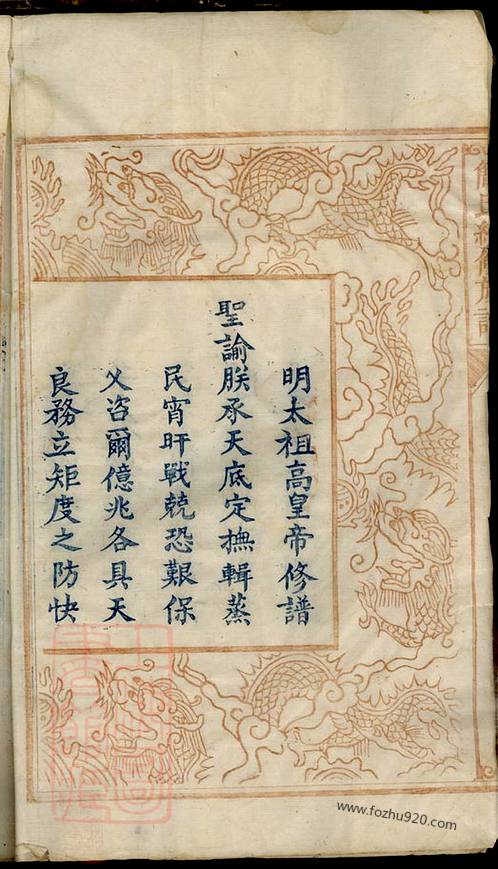 明太祖高皇帝修譜
聖諭朕承天底定撫輯蒸
民宵旰戰兢恐艱保
乂咨爾億兆各具天
良務立矩度之防快
www.fozhu920.com